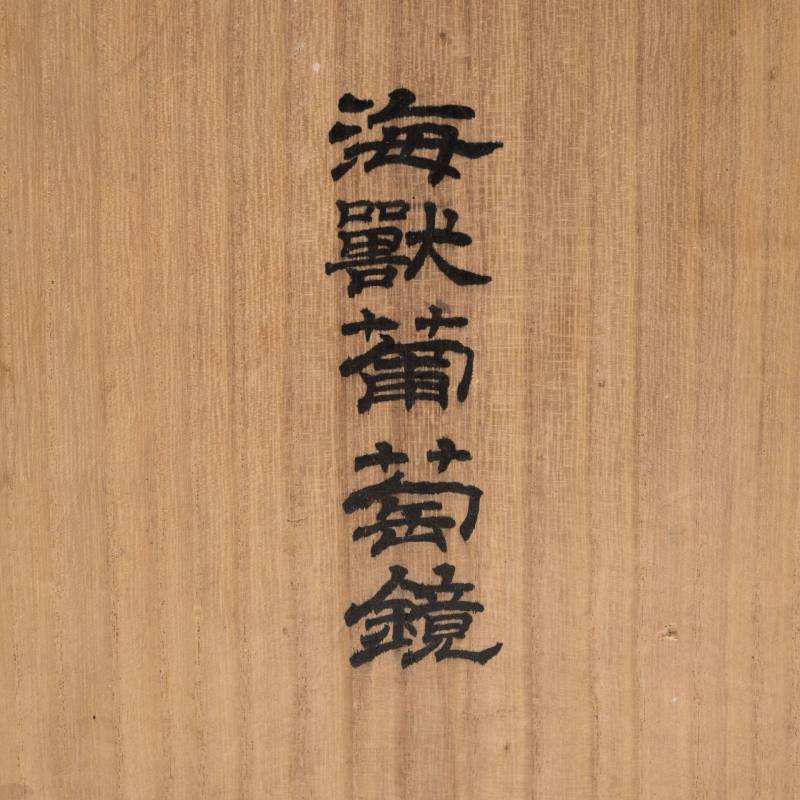 海獸葡萄鏡